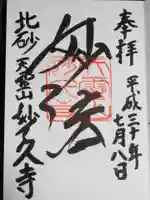 奉拝
平成三十年
七月八日
妙法
北砂
天霊山妙久寺